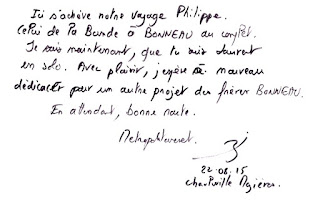 Ici s'achève notre voyage Philippe.
Celui de la Bande à BONNEAU au complet.
Je sais maintenant, que tu suis souvent
en solo. Avec plaisir, j'espère à nouveau
dédicacer pour un autre projet des frères BONNEAU.
En attendant, bonne route.
22.08.15
Charleville Mézières.